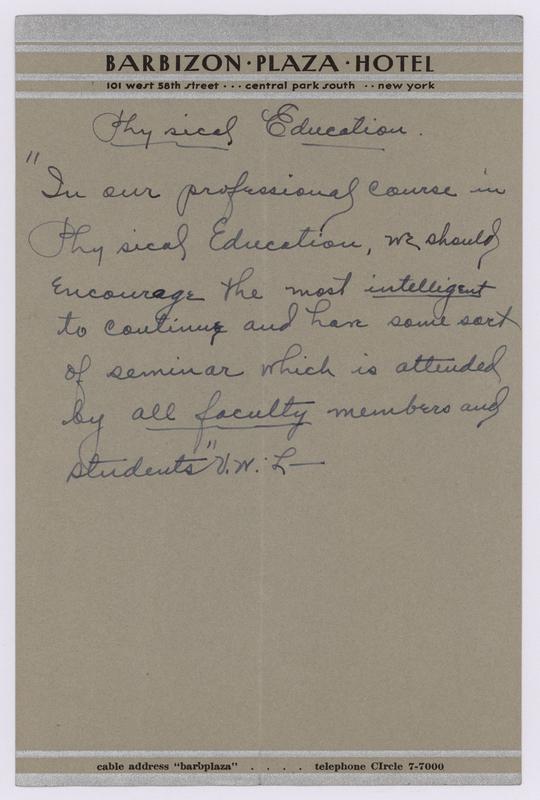 BARBIZON·PLAZA·HOTEL
101 west 58th street ··· central park south ·· new york
Physical Education.
"In our professional course in
Physical Education, we should
encourage the most intelligent
to continue and have some sort
of seminar which is attended
by all faculty members and
students" V.W.L—
cable address "barbplaza" . . . . telephone CIrcle 7-7000